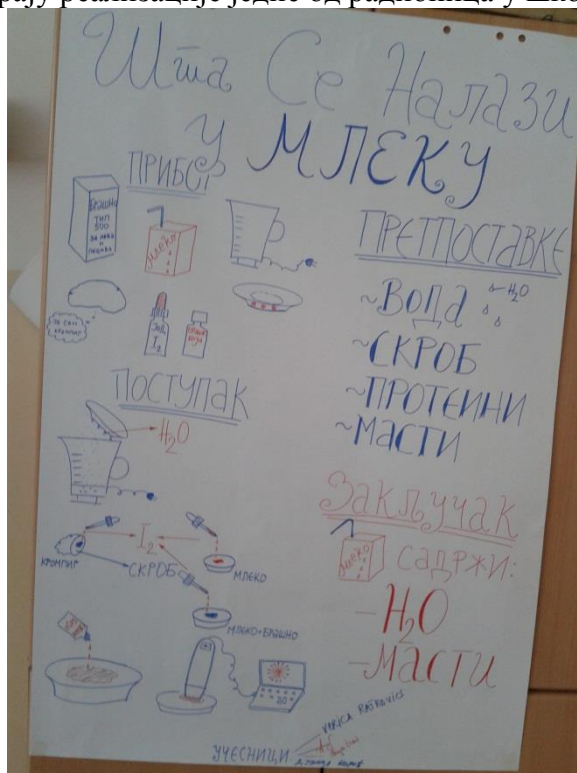 рају реализације једне од радионица у шко
Шта Се Налази
у МЛЕКУ
ПРИБОР
БРАШНО
ТИП
500
млеко
ЈА САМ
КРОМПИР
I₂
ПРЕТПОСТАВКЕ
~ВОДА
H₂O
~СКРОБ
~ПРОТЕИНИ
~МАСТИ
ПОСТУПАК
H₂O
I₂
КРОМПИР
СКРОБ
МЛЕКО
МЛЕКО+БРАШНО
ЗАКЉУЧАК
млеко
САДРЖИ:
-H₂O
-МАСТИ
УЧЕСНИЦИ